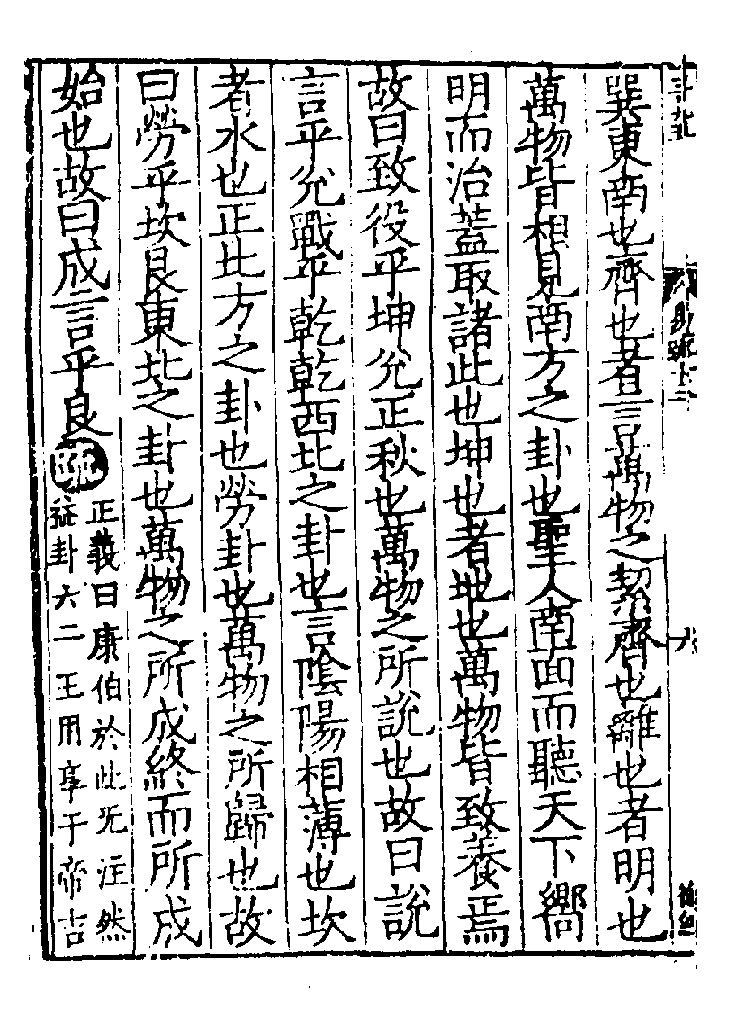 巽東南也齊也者言萬物之絜齊也離也者明也
萬物皆相見南方之卦也聖人南面而聽天下嚮
明而治蓋取諸此也坤也者地也萬物皆致養焉
故曰致役乎坤兌正秋也萬物之所說也故曰說
言乎兌戰乎乾乾西北之卦也言陰陽相薄也坎
者水也正北方之卦也勞卦也萬物之所歸也故
曰勞乎坎艮東北之卦也萬物之所成終而所成
始也故曰成言乎艮疏
正義曰康伯於此无注然
益卦六二王用享于帝吉